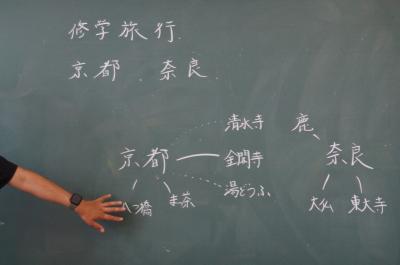 修学旅行
京都 奈良
清水寺 鹿
京都 金閣寺 奈良
湯どうふ
八つ橋 ま茶 大仏 東大寺